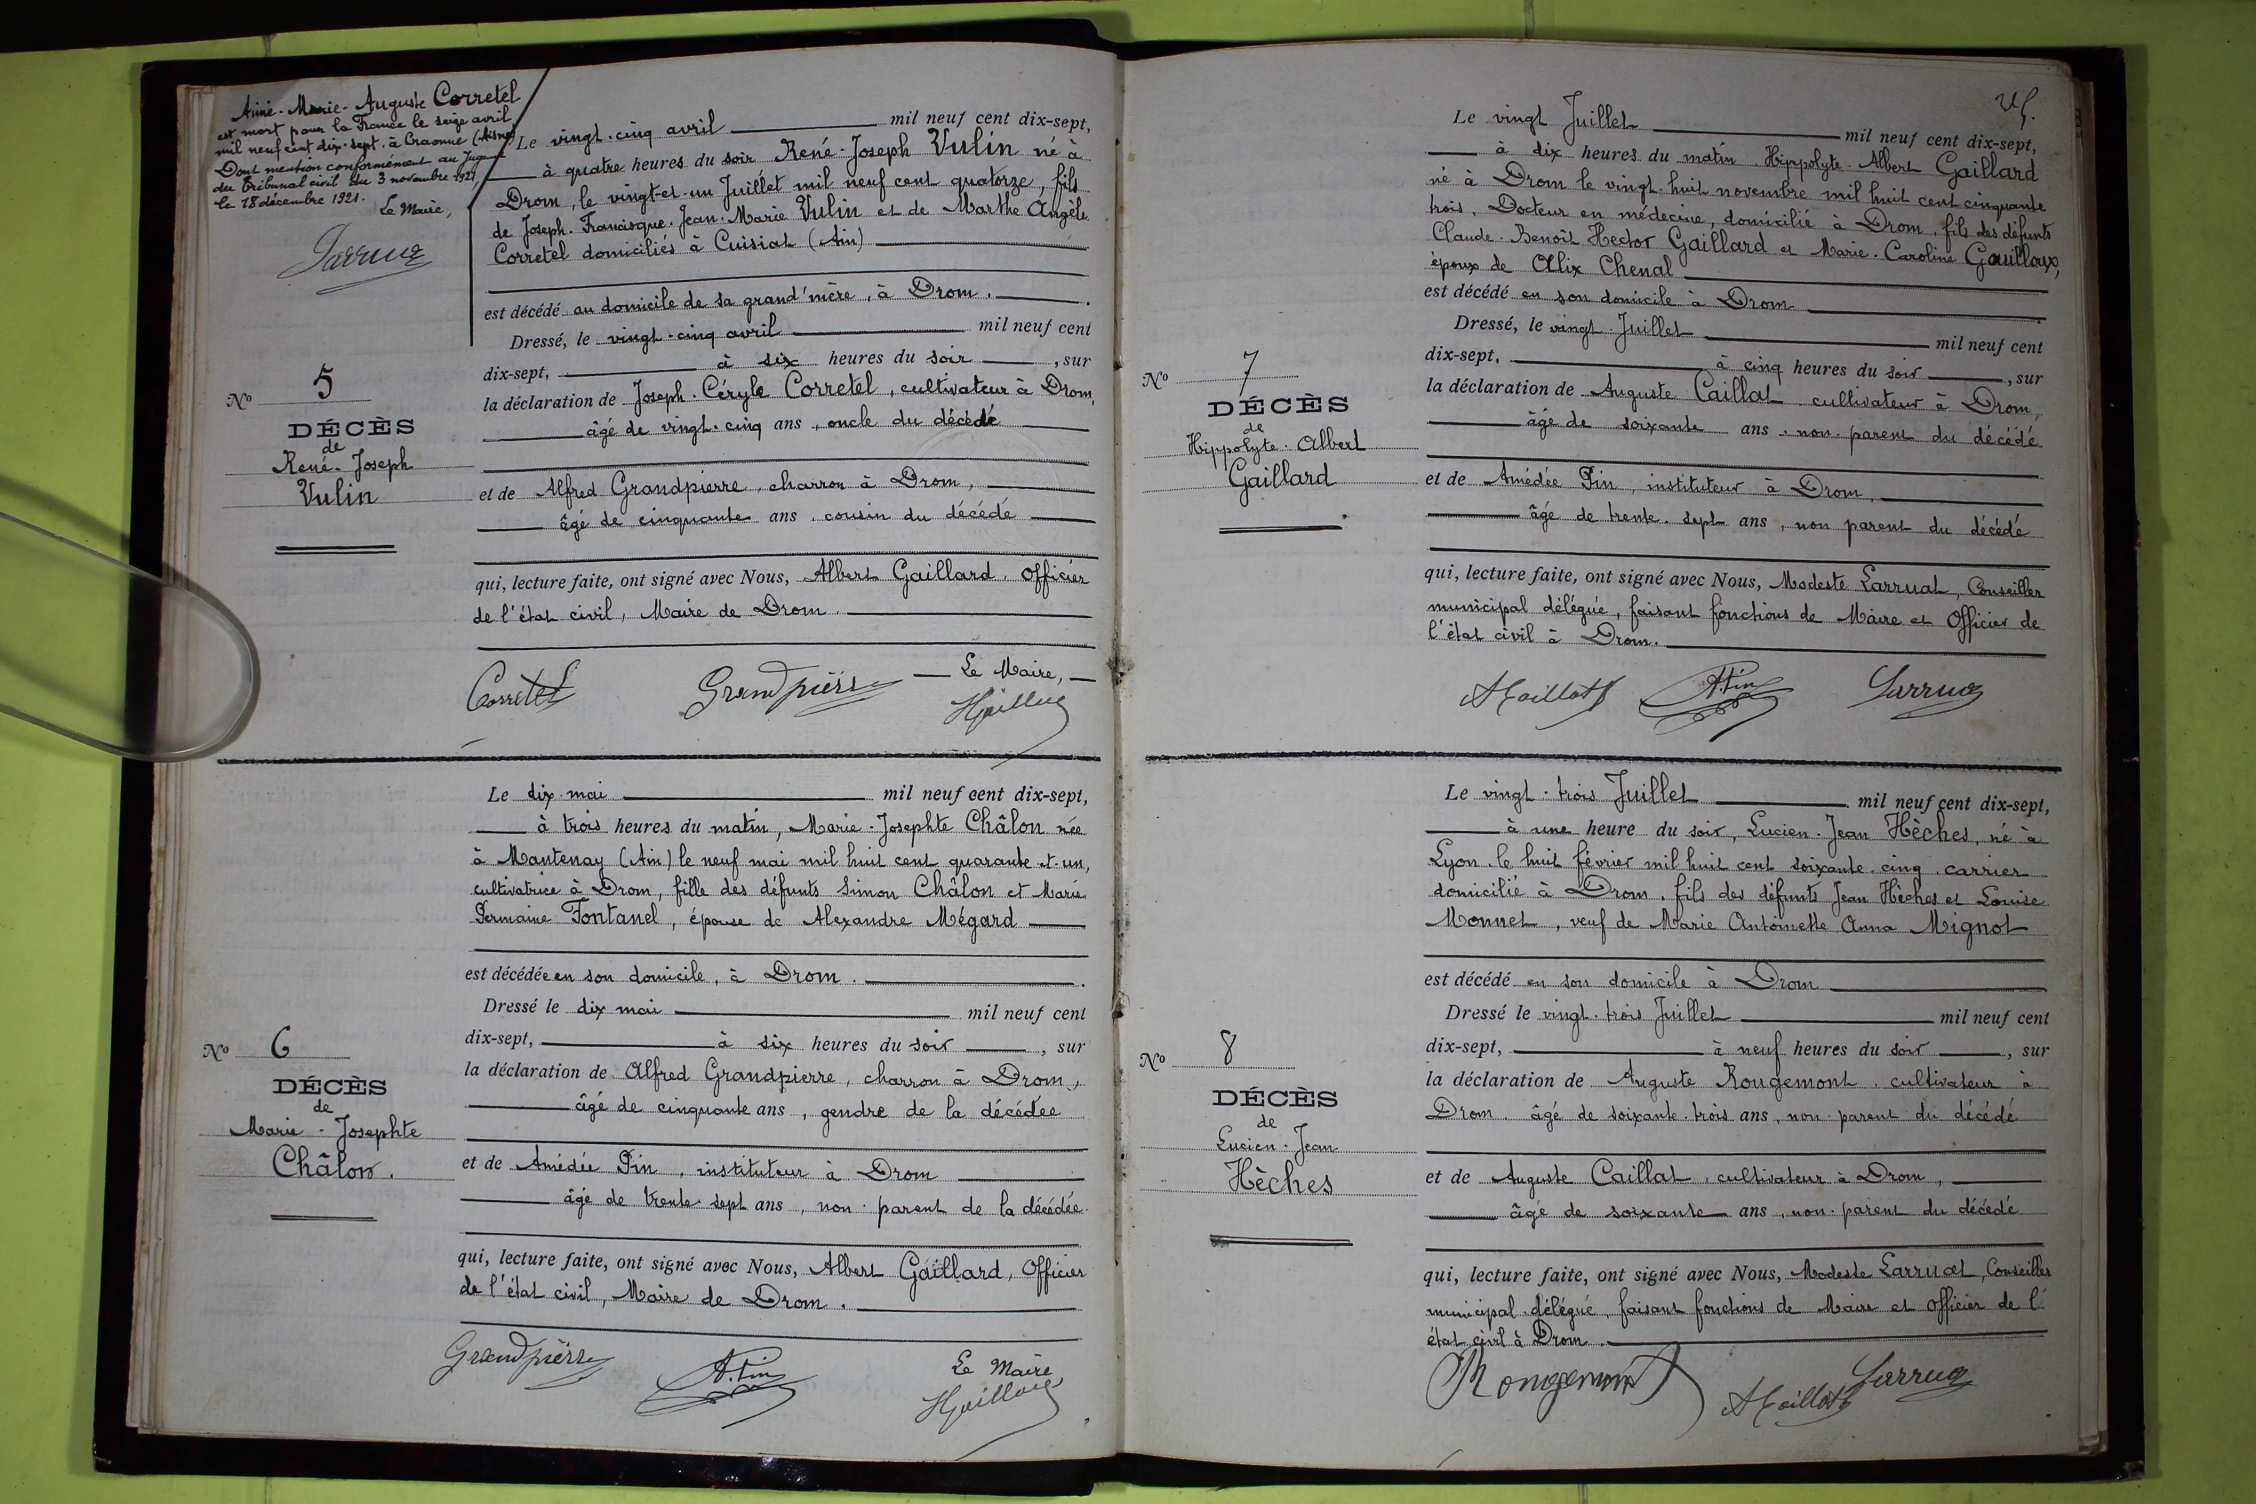 Aimé-Marie-Auguste Corretel
est mort pour la France le seize avril
mil neuf cent dix-sept, à Craonne (Aisne)
Dont mention conformément au Jugement
du tribunal civil du 3 novembre 1921,
le 18 décembre 1921.
Le Maire,
Larruat
Le vingt-cinq avril mil neuf cent dix-sept,
à quatre heures du soir René-Joseph Vulin né à
Drom, le vingt-et-un Juillet mil neuf cent quatorze, fils
de Joseph-Francisque-Jean-Marie Vulin et de Marthe Angèle
Corretel domiciliés à Cuisiat (Ain)
est décédé au domicile de sa grand'mère, à Drom.
Dressé, le vingt-cinq avril mil neuf cent
dix-sept, à six heures du soir, sur
la déclaration de Joseph-Céryle Corretel, cultivateur à Drom,
âgé de vingt-cinq ans, oncle du décédé
et de Alfred Grandpierre, charron à Drom,
âgé de cinquante ans, cousin du décédé
qui, lecture faite, ont signé avec Nous, Albert Gaillard, Officier
de l'état civil, Maire de Drom.
Nº 5
DÉCÈS
de
René-Joseph
Vulin
Le Maire,
Corretel Grandpierre HGaillard
Le dix mai mil neuf cent dix-sept,
à trois heures du matin, Marie-Josephte Châlon née
à Mantenay (Ain) le neuf mai mil huit cent quarante-et-un,
cultivatrice à Drom, fille des défunts Simon Châlon et Marie
Germaine Fontanel, épouse de Alexandre Mégard
est décédée en son domicile, à Drom.
Dressé le dix mai mil neuf cent
dix-sept, à six heures du soir, sur
la déclaration de Alfred Grandpierre, charron à Drom,
âgé de cinquante ans, gendre de la décédée
et de Amédée Pin, instituteur à Drom
âgé de trente-sept ans, non-parent de la décédée.
qui, lecture faite, ont signé avec Nous, Albert Gaillard, Officier
de l'état civil, Maire de Drom.
Nº 6
DÉCÈS
de
Marie-Josephte
Châlon.
Le Maire
Grandpierre A.Pin HGaillard
25.
Le vingt Juillet mil neuf cent dix-sept,
à dix heures du matin Hippolyte-Albert Gaillard
né à Drom le vingt-huit novembre mil huit cent cinquante
trois, Docteur en médecine, domicilié à Drom, fils des défunts
Claude-Benoît Hector Gaillard et Marie-Caroline Gouilloux,
époux de Alix Chenal
est décédé en son domicile à Drom
Dressé, le vingt-Juillet mil neuf cent
dix-sept, à cinq heures du soir, sur
la déclaration de Auguste Caillat cultivateur à Drom,
âgé de soixante ans, non-parent du décédé
et de Amédée Pin, instituteur à Drom,
âgé de trente-sept ans, non parent du décédé
qui, lecture faite, ont signé avec Nous, Modeste Larruat, Conseiller
municipal délégué, faisant fonctions de Maire et Officier de
l'état civil à Drom.
Nº 7
DÉCÈS
de
Hippolyte-Albert
Gaillard
ACaillat A.Pin Larruat
Le vingt-trois Juillet mil neuf cent dix-sept,
à une heure du soir, Lucien-Jean Hèches, né à
Lyon le huit février mil huit cent soixante-cinq, carrier
domicilié à Drom, fils des défunts Jean Hèches et Louise
Monnet, veuf de Marie Antoinette Anna Mignot
est décédé en son domicile à Drom
Dressé le vingt-trois Juillet mil neuf cent
dix-sept, à neuf heures du soir, sur
la déclaration de Auguste Rougemont, cultivateur à
Drom âgé de soixante-trois ans, non-parent du décédé
et de Auguste Caillat, cultivateur à Drom,
âgé de soixante ans, non-parent du décédé
qui, lecture faite, ont signé avec Nous, Modeste Larruat, Conseiller
municipal délégué, faisant fonctions de Maire et Officier de l'
état civil à Drom.
Nº 8
DÉCÈS
de
Lucien-Jean
Hèches
Rougemont ACaillat Larruat